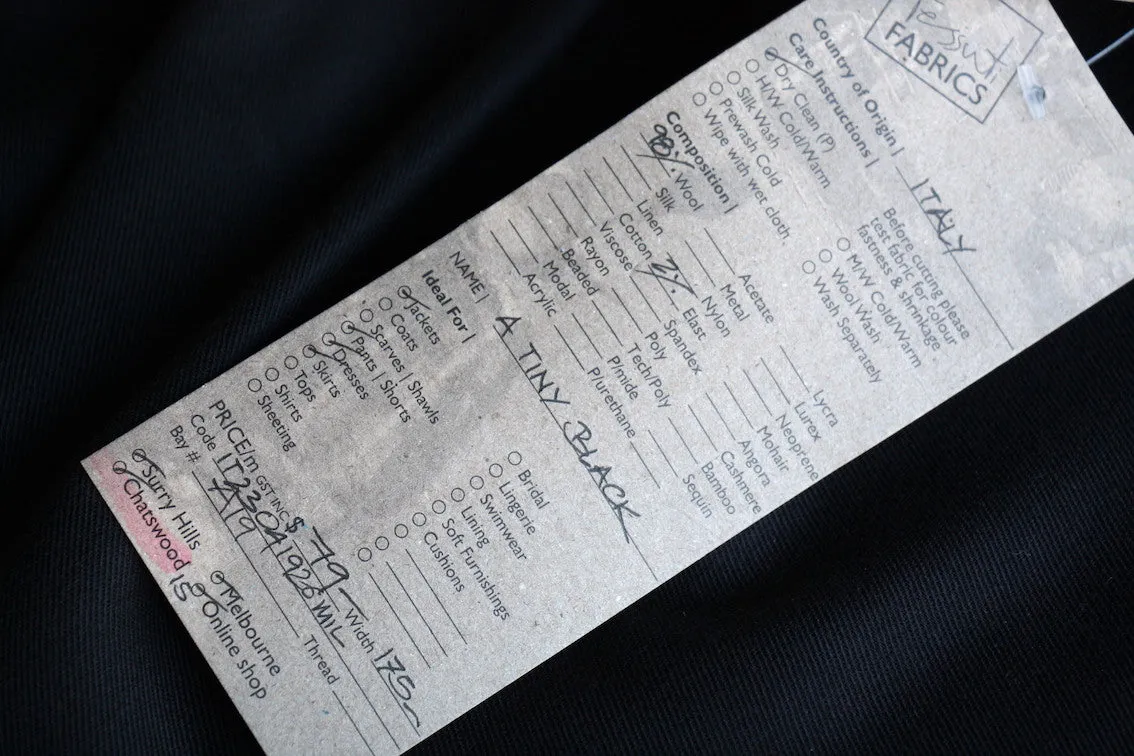 Tessuti
FABRICS
Country of Origin | ITALY
Care Instructions |
Dry Clean (P)
H/W Cold/Warm
Silk Wash
Prewash Cold
Wipe with wet cloth.
Before cutting please
test fabric for colour
fastness & shrinkage
M/W Cold/Warm
Wool Wash
Wash Separately
Composition |
98% Wool
Silk
Linen
Cotton
Viscose
Rayon
Beaded
Modal
Acrylic
Acetate
Metal
Nylon
2% Elast
Spandex
Poly
Tech/Poly
P/mide
P/urethane
Lycra
Lurex
Neoprene
Mohair
Angora
Cashmere
Bamboo
Sequin
NAME | A TINY BLACK
Ideal For |
Jackets
Coats
Scarves | Shawls
Pants | Shorts
Dresses
Skirts
Tops
Shirts
Sheeting
Bridal
Lingerie
Swimwear
Lining
Soft Furnishings
Cushions
PRICE/m GST INC $79- Width 175
Code
Bay # A19 Thread
Surry Hills
Chatswood
Melbourne
15 Online shop